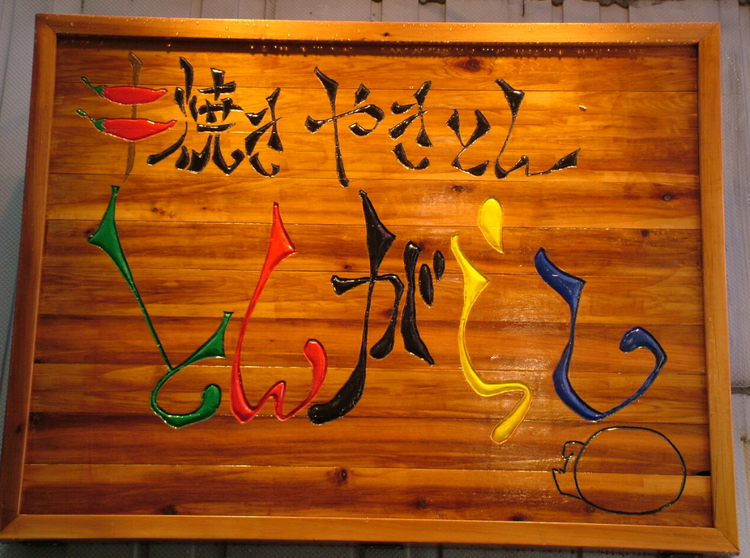 串焼き やきとん
とんがらし